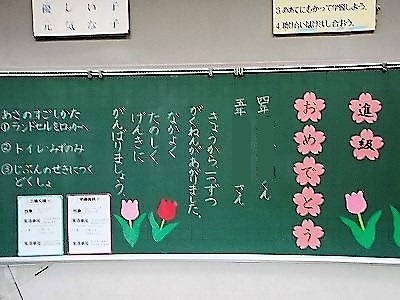 優しい子
元気な子
3.めあてにむかって学習しよう。
4.助け合いはげまし合おう。
進級
おめでとう
四年 くん
五年 さん
きょうから一つずつ
がくねんがあがりました。
なかよく
たのしく
げんきに
がんばりましょう。
あさのすごしかた
①ランドセルをロッカーへ
②トイレ・みずのみ
③じぶんのせきにつく
どくしょ